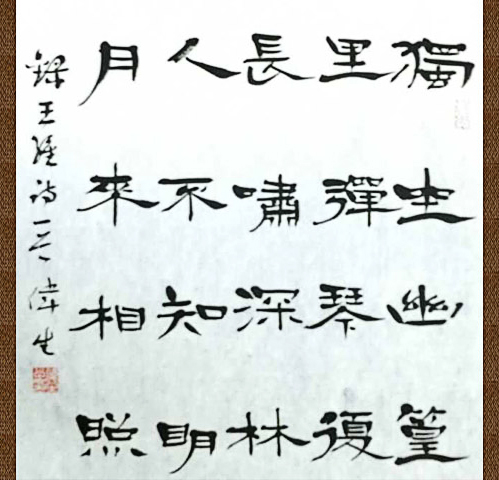 獨坐幽篁
里彈琴復
長嘯深林
人不知明
月來相照
錄王維诗一首 偉生